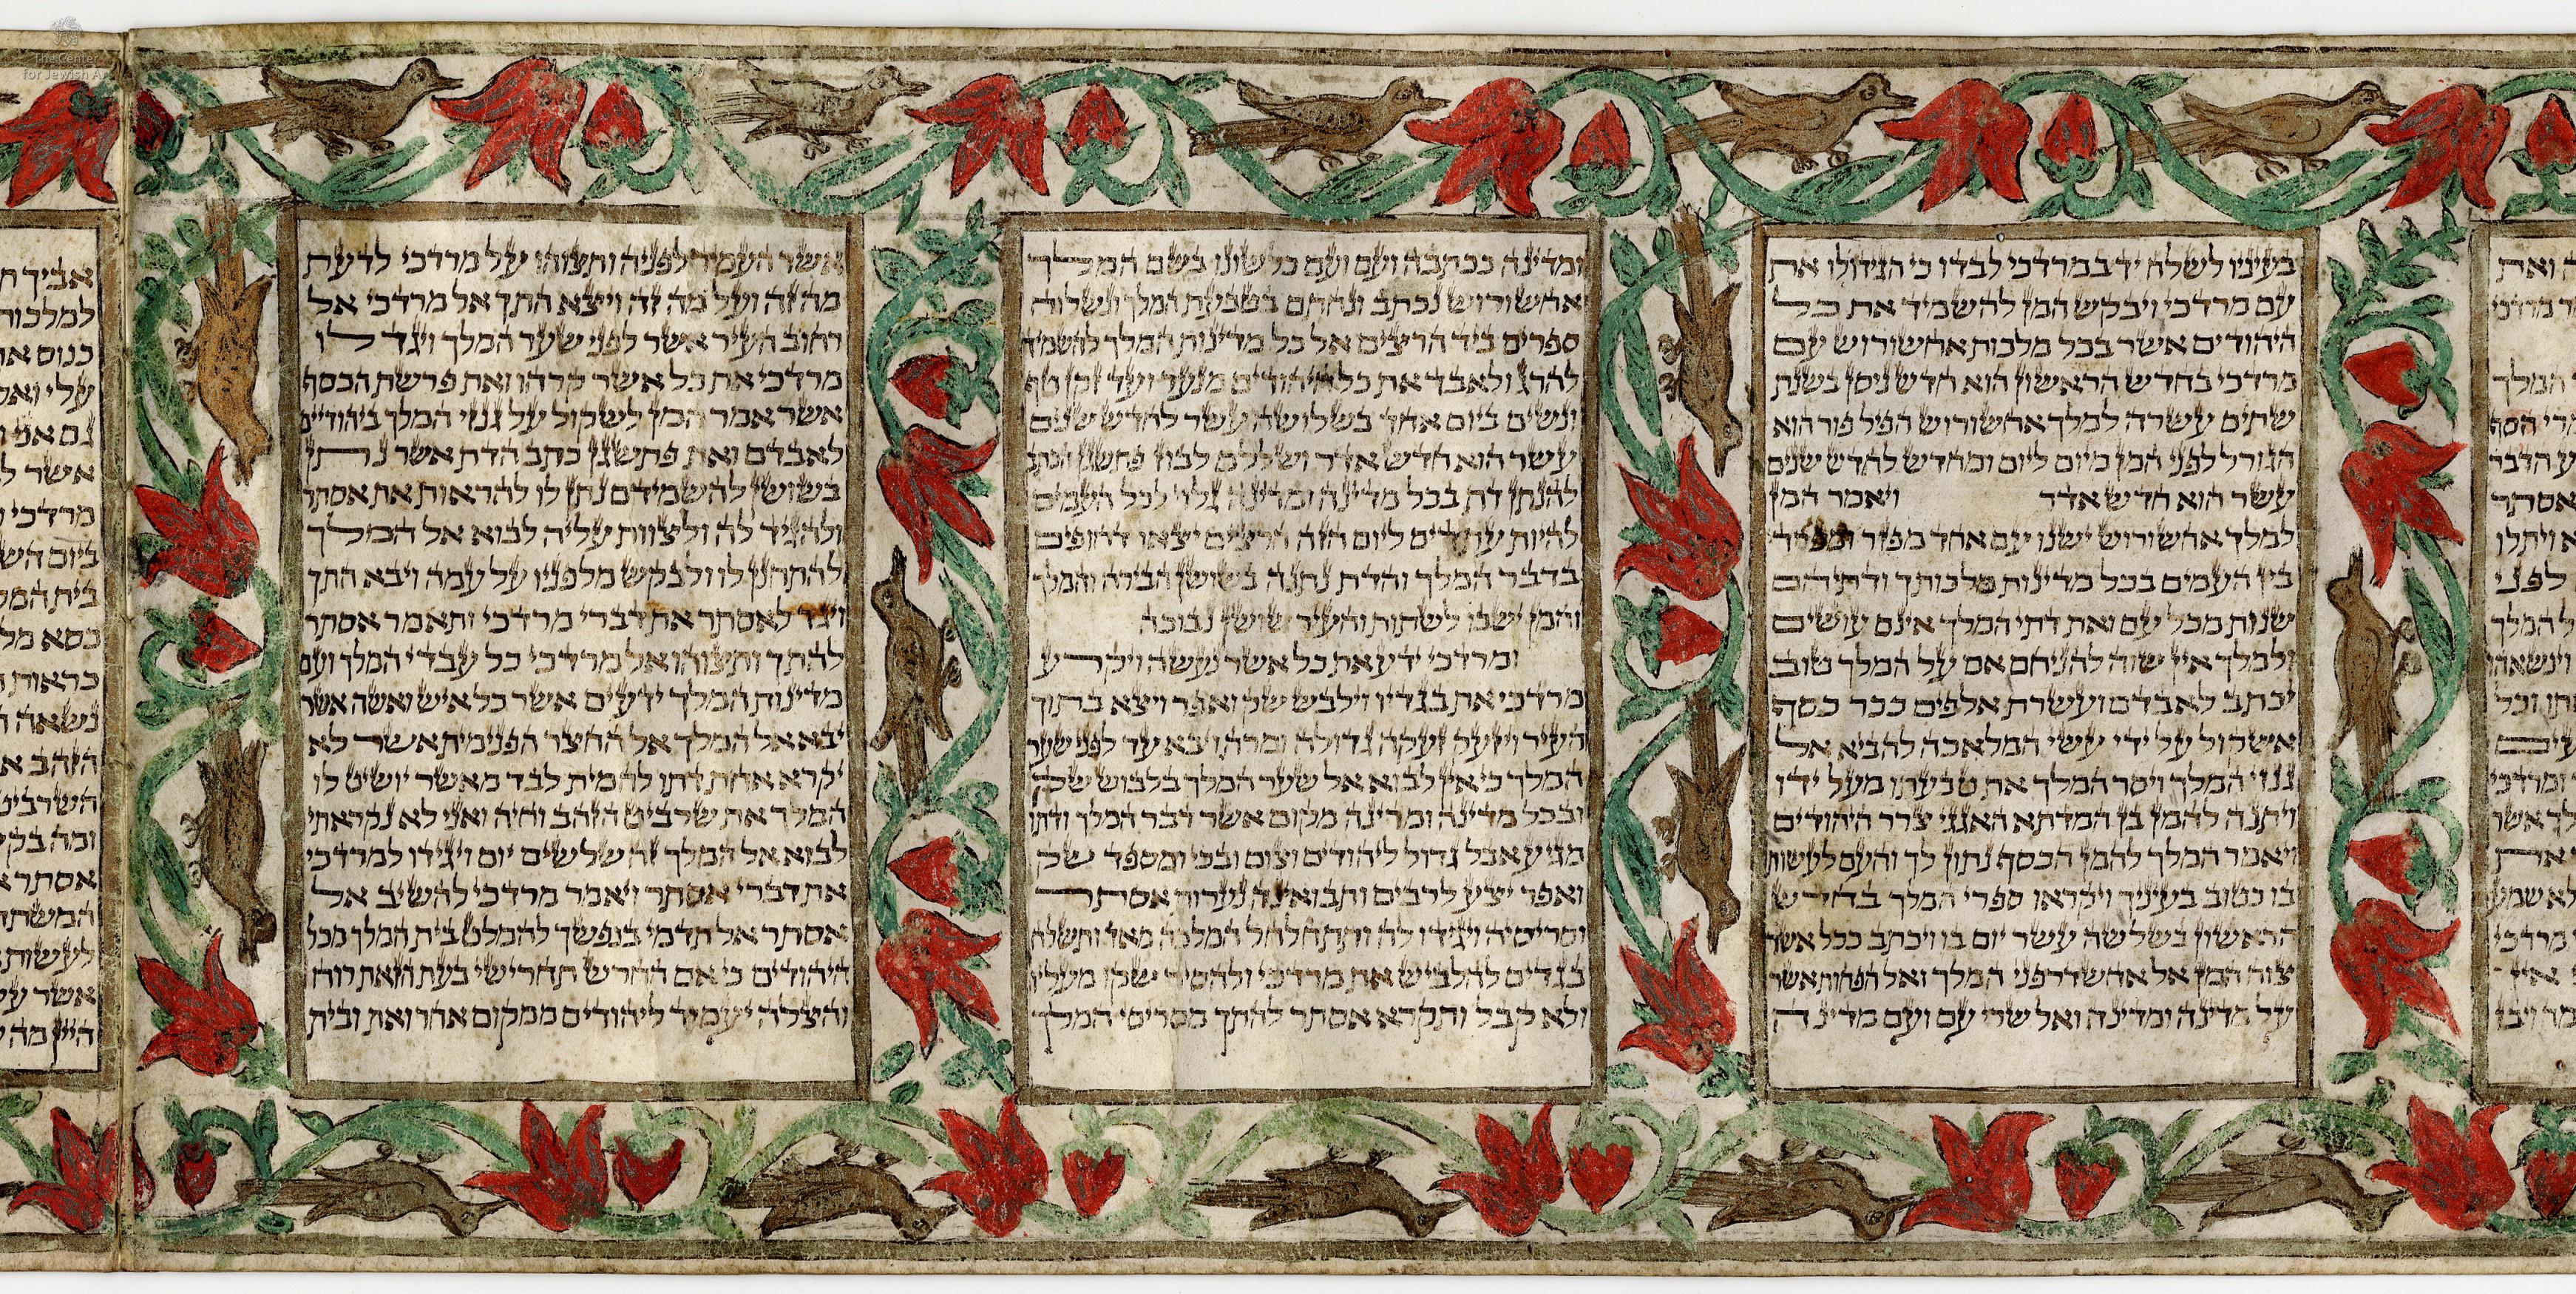 בעיניו לשלח יד במרדכי לבדו כי הגידו לו את
עם מרדכי ויבקש המן להשמיד את כל
היהודים אשר בכל מלכות אחשורוש עם
מרדכי בחדש הראשון הוא חדש ניסן בשנת
שתים עשרה למלך אחשורוש הפיל פור הוא
הגורל לפני המן מיום ליום ומחדש לחדש שנים
עשר הוא חדש אדר ויאמר המן
למלך אחשורוש ישנו עם אחד מפזר ומפרד
בין העמים בכל מדינות מלכותך ודתיהם
שנות מכל עם ואת דתי המלך אינם עושים
ולמלך אין שוה להניחם אם על המלך טוב
יכתב לאבדם ועשרת אלפים ככר כסף
אשקול על ידי עשי המלאכה להביא אל
גנזי המלך ויסר המלך את טבעתו מעל ידו
ויתנה להמן בן המדתא האגגי צרר היהודים
ויאמר המלך להמן הכסף נתון לך והעם לעשות
בו כטוב בעיניך ויקראו ספרי המלך בחדש
הראשון בשלשה עשר יום בו ויכתב ככל אשר
צוה המן אל אחשדרפני המלך ואל הפחות אשר
על מדינה ומדינה ואל שרי עם ועם מדינה
ומדינה ככתבה ועם ועם כלשונו בשם המלך
אחשורוש נכתב ונחתם בטבעת המלך ונשלוח
ספרים ביד הרצים אל כל מדינות המלך להשמיד
להרג ולאבד את כל היהודים מנער ועד זקן טף
ונשים ביום אחד בשלושה עשר לחדש שנים
עשר הוא חדש אדר ושללם לבוז פתשגן הכתב
להנתן דת בכל מדינה ומדינה גלוי לכל העמים
להיות עתדים ליום הזה הרצים יצאו דחופים
בדבר המלך והדת נתנה בשושן הבירה והמלך
והמן ישבו לשתות והעיר שושן נבוכה
ומרדכי ידע את כל אשר נעשה ויקרע
מרדכי את בגדיו וילבש שק ואפר ויצא בתוך
העיר ויזעק זעקה גדולה ומרה ויבא עד לפני שער
המלך כי אין לבוא אל שער המלך בלבוש שק
ובכל מדינה ומדינה מקום אשר דבר המלך ודתו
מגיע אבל גדול ליהודים וצום ובכי ומספד שק
ואפר יצע לרבים ותבואינה נערות אסתר
וסריסיה ויגידו לה ותתחלחל המלכה מאד ותשלח
בגדים להלביש את מרדכי ולהסיר שקו מעליו
ולא קבל ותקרא אסתר להתך מסריסי המלך
אשר העמיד לפניה ותצוהו על מרדכי לדעת
מה זה ועל מה זה ויצא התך אל מרדכי אל
רחוב העיר אשר לפני שער המלך ויגד לו
מרדכי את כל אשר קרהו ואת פרשת הכסף
אשר אמר המן לשקול על גנזי המלך ביהודיים
לאבדם ואת פתשגן כתב הדת אשר נתן
בשושן להשמידם נתן לו להראות את אסתר
ולהגיד לה ולצוות עליה לבוא אל המלך
להתחנן לו ולבקש מלפניו על עמה ויבא התך
ויגד לאסתר את דברי מרדכי ותאמר אסתר
להתך ותצוהו אל מרדכי כל עבדי המלך ועם
מדינות המלך ידעים אשר כל איש ואשה אשר
יבא אל המלך אל החצר הפנימית אשר לא
יקרא אחת דתו להמית לבד מאשר יושיט לו
המלך את שרביט הזהב וחיה ואני לא נקראתי
לבוא אל המלך זה שלשים יום ויגידו למרדכי
את דברי אסתר ויאמר מרדכי להשיב אל
אסתר אל תדמי בנפשך להמלט בית המלך מכל
היהודים כי אם החרש תחרישי בעת הזאת רוח
והצלה יעמיד ליהודים ממקום אחר ואת ובית
The Center
for Jewish Art